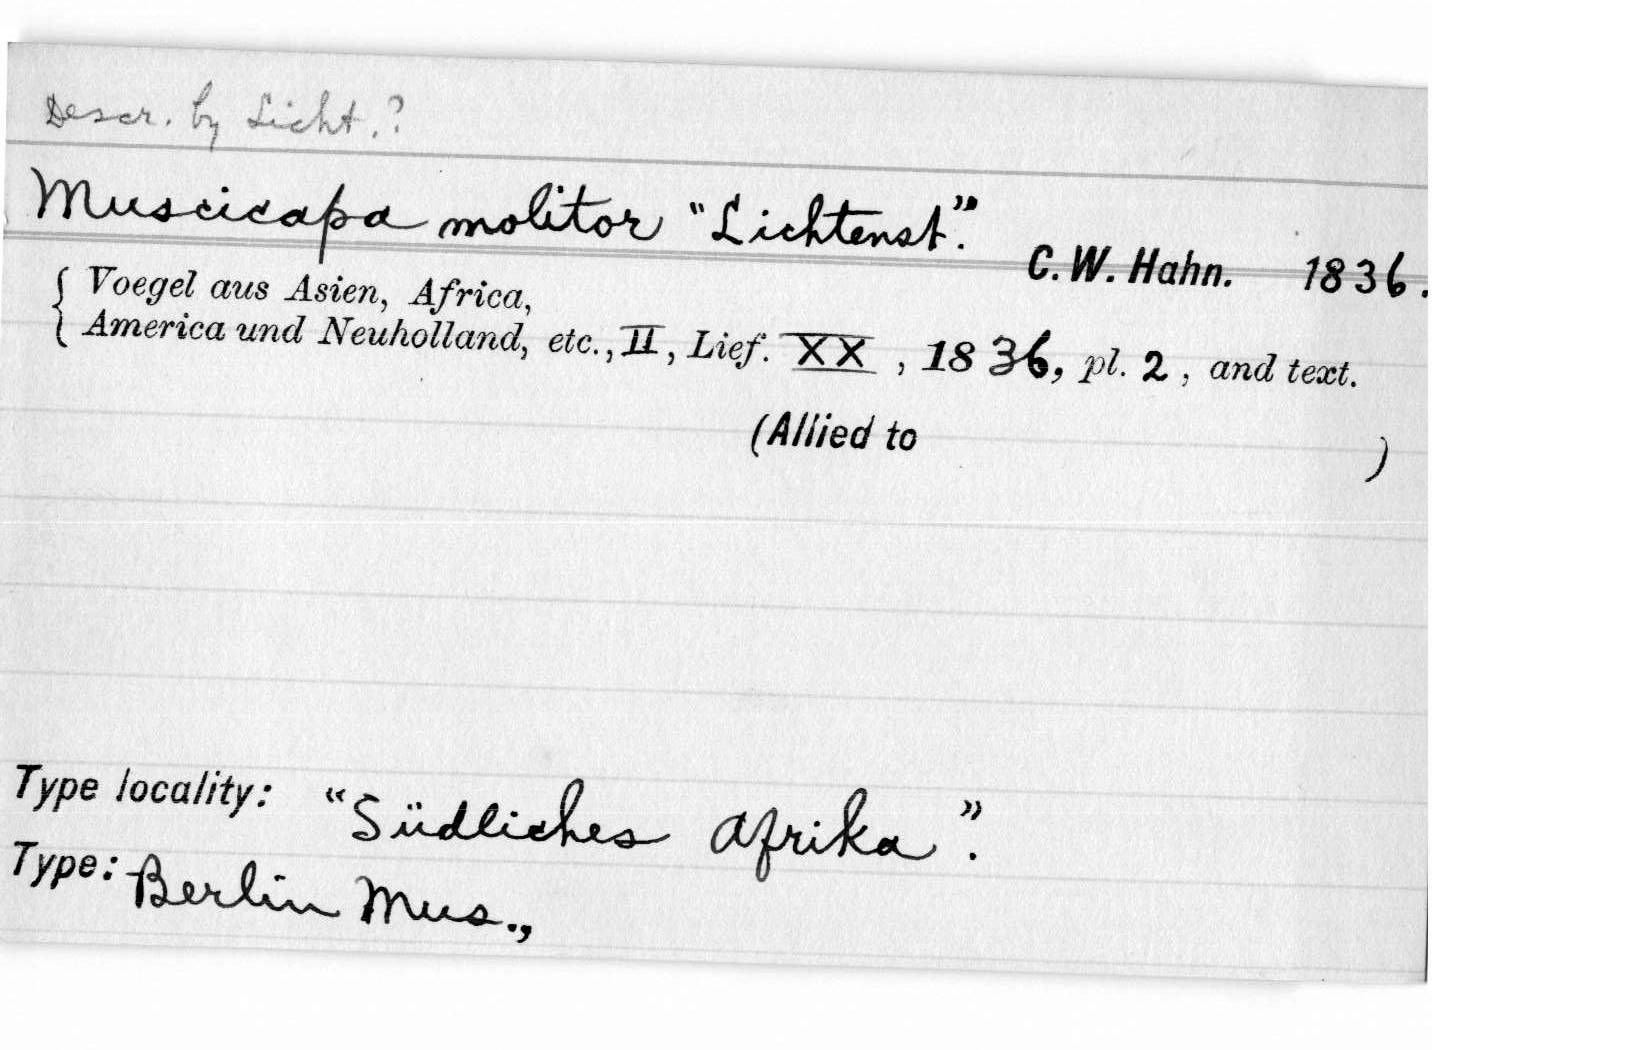 Descr. by Licht.?
Muscicapa molitor "Lichtenst".
C. W. Hahn. 1836.
{ Voegel aus Asien, Africa,
America und Neuholland, etc., II, Lief. XX, 1836, pl. 2, and text.
(Allied to )
Type locality: "Südliches Afrika".
Type: Berlin Mus.,